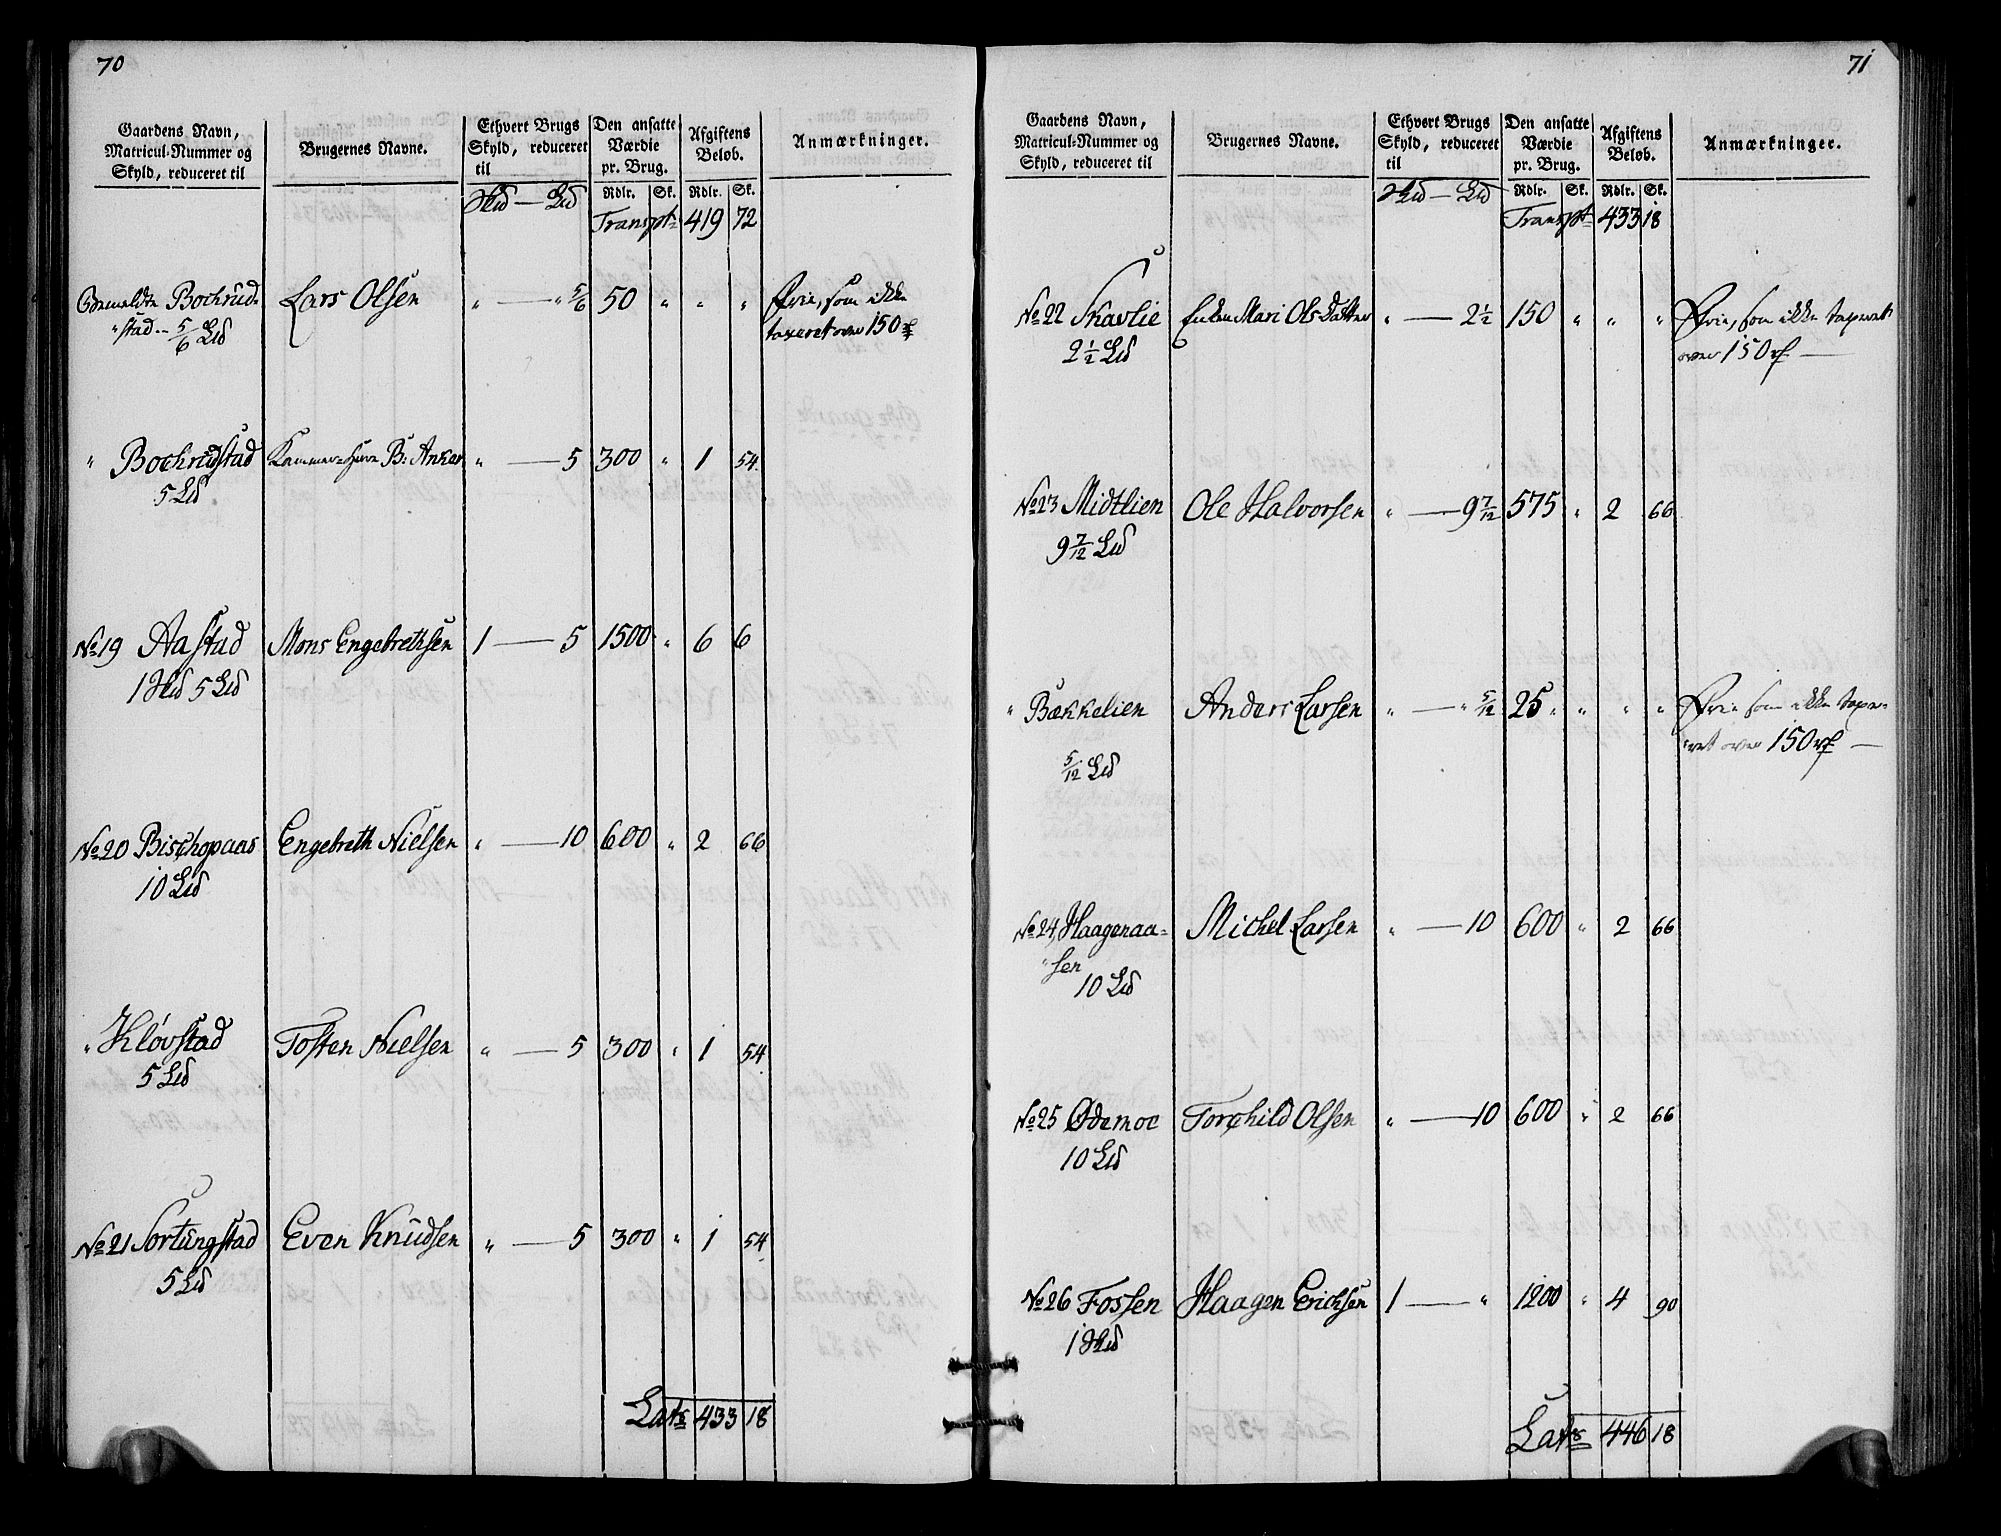 70
Gaardens Navn, Matricul-Nummer og Skyld, reduceret til | Brugernes Navne. | Ethvert Brugs Skyld, reduceret til | Den ansatte Værdie pr. Brug. | Afgiftens Beløb. | Anmærkninger.
Hud — Ld | Rdlr. | Sk. | Rdlr. | Sk.
Transpt 419 72
Bochrud- Lars Olsen " — " 5/6 50 " " " Frie, som ikke
"stad -- 5/6 Ld taxeret over 150 rf
" Bochrudstad Kammer-Herre B: Anker " — 5 300 " 1 54.
5 Ld
No 19 Aastad Mons Engebrethsen 1 — 5 1500 " 6 6
1 Hud 5 Ld
No 20 Bischopaas Engebreth Nielsen " — 10 600 " 2 66
10 Ld
" Kløvstad Tosten Nielsen " — 5 300 " 1 54.
5 Ld
No 21 Sortungstad Even Knudsen " — 5 300 " 1 54.
5 Ld
Lats 433 18
71
Gaardens Navn, Matricul-Nummer og Skyld, reduceret til | Brugernes Navne. | Ethvert Brugs Skyld, reduceret til | Den ansatte Værdie pr. Brug. | Afgiftens Beløb. | Anmærkninger.
Hud — Ld | Rdlr. | Sk. | Rdlr. | Sk.
Transpt 433 18
No 22 Skavlie Enken Mari Olsdatter " — 2 1/2 150 " " " Frie, som ikke taxeret
2 1/2 Ld over 150 rf —
No 23 Midtlien Ole Halvorsen " — 9 7/12 575 " 2 66
9 7/12 Ld
" Bækkelien Anders Larsen " — " 5/12 25 " " " Frie som ikke taxe-
5/12 Ld "ret over 150 rf —
No 24, Haagenaa- Michel Larsen " — 10 600 " 2 66
"sen
10 Ld
No 25 Ødemoe Torchild Olsen " — 10 600 " 2 66
10 Ld
No 26 Fossen Haagen Erichsen 1 — " 1200 " 4 90
1 Hud
Lats 446 18